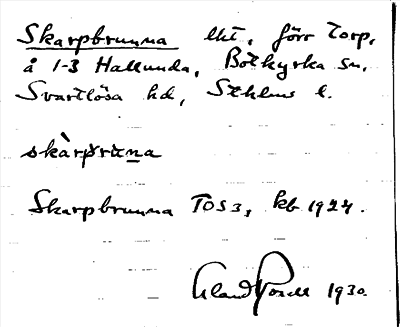 Skarpbrunna lht, förr torp,
å 1-3 Hallunda, Botkyrka sn,
Svartlösa hd, Sthlms l.
skàrpruna
Skarpbrunna TOS3, kb 1927.
1930.